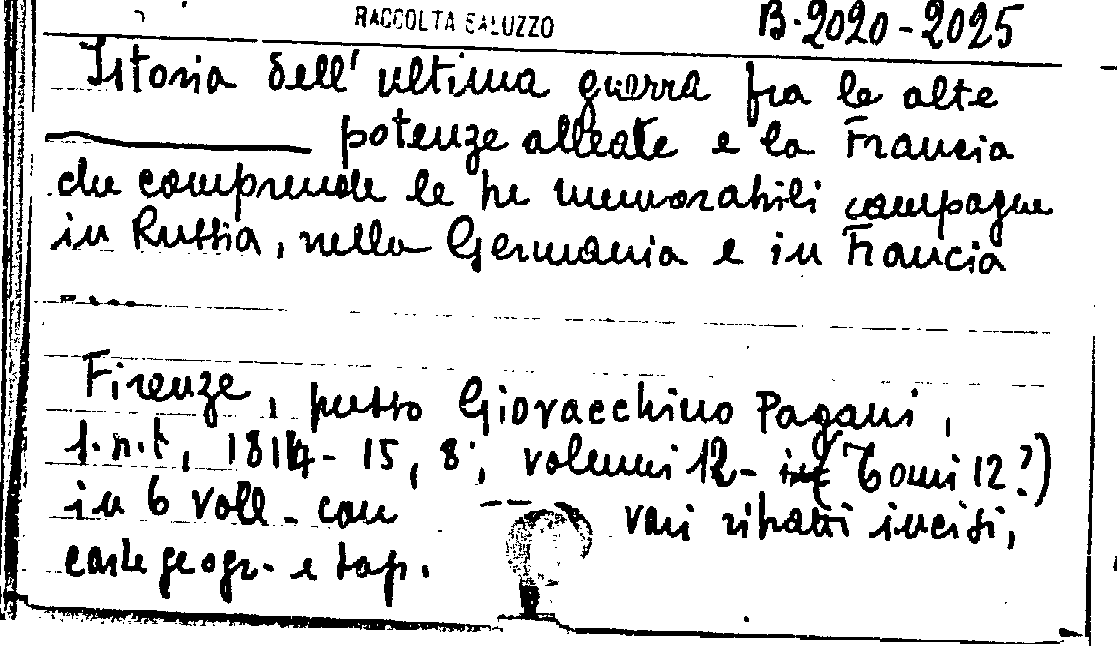 RACCOLTA SALUZZO B.2020-2025
Istoria dell'ultima guerra fra le alte
potenze alleate e la Francia
che comprende le tre memorabili campagne
in Russia, nella Germania e in Francia
....
Firenze, presso Giovacchino Pagani,
s.n.t, 1814-15, 8°, volumi 12- (Tomi 12?)
in 6 voll. con vari ritratti incisi,
carte geogr. e top.